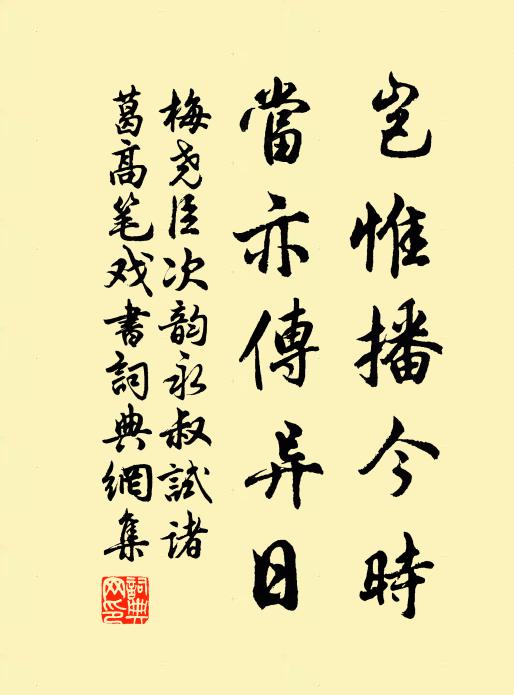 岂惟播今時
當亦傳异日
梅尧臣次韵永叔試诸
葛髙笔戏書詞典網集
詞典网印